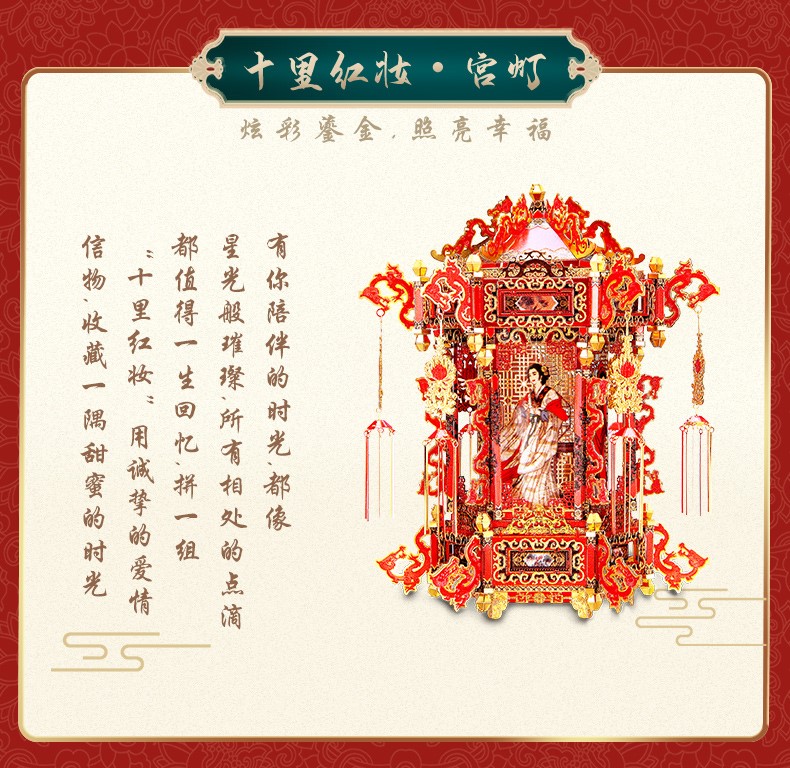 十里红妆·宫灯
炫彩鎏金,照亮幸福
有你陪伴的时光、都像
星光般璀璨、所有相处的点滴
都值得一生回忆、拼一组
“十里红妆”用诚挚的爱情
信物、收藏一隅甜蜜的时光